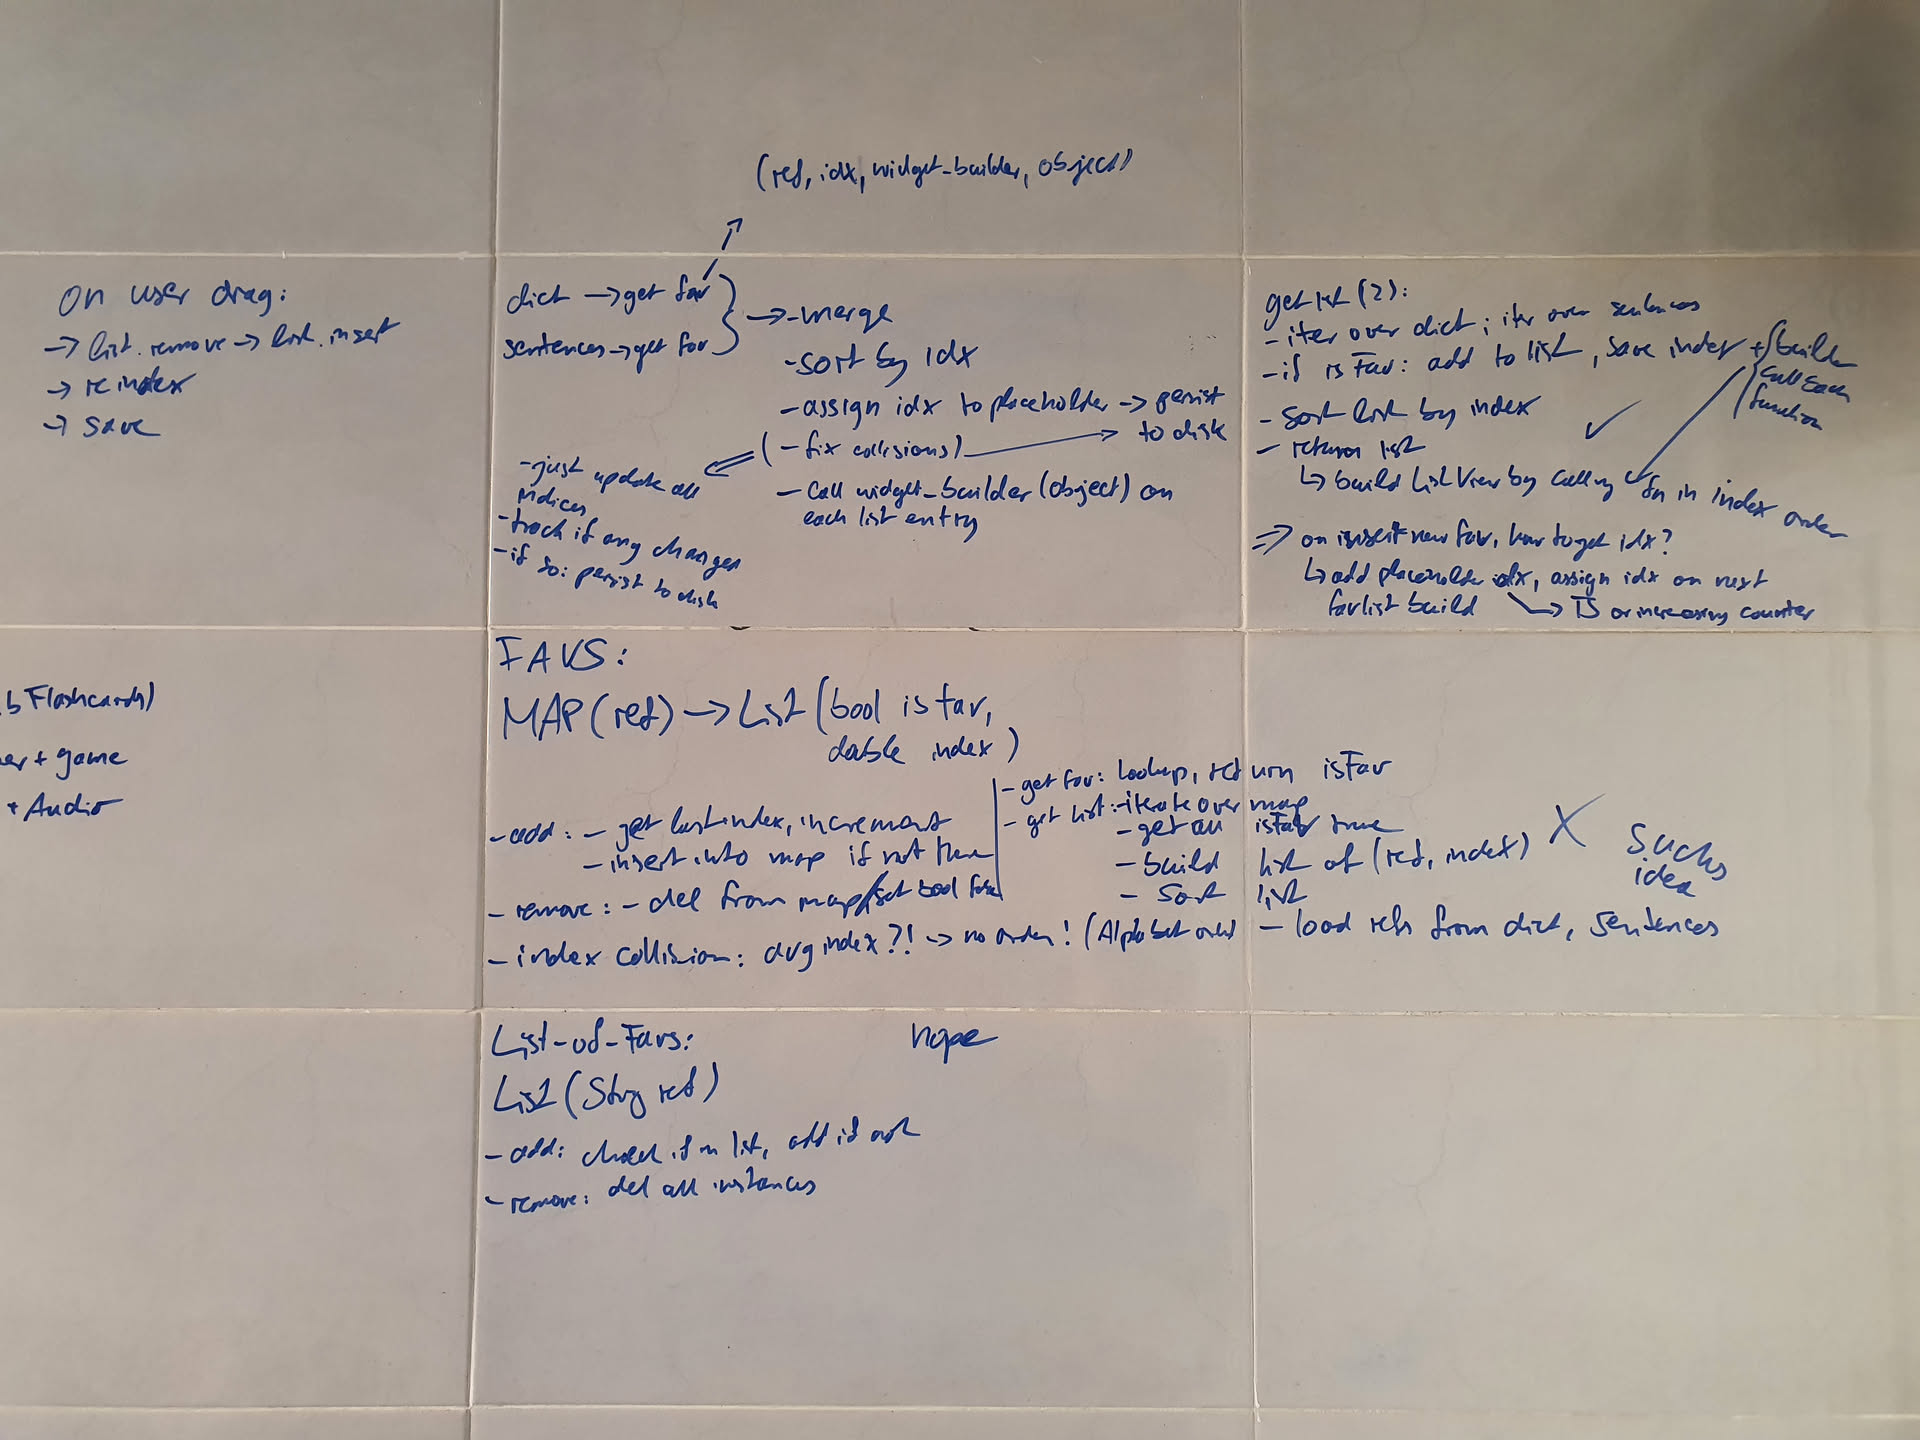 (ref, idx, widget_builder, object)
on user drag:
→ list.remove → list.insert
→ reindex
→ save
dict → get fav
sentences → get fav
→ - merge
- sort by idx
- assign idx to placeholder → persist
to disk
(- fix collisions)
- call widget_builder (object) on
each list entry
- just update all
indices
- track if any changes
- if so: persist to disk
get list (2):
- iter over dict; iter over sentences
- if isFav: add to list, save index + builder
call each
function
- sort list by index ✓
- return list
↳ build ListView by calling fn in index order
⇒ on insert new fav, how to get idx?
↳ add placeholder idx, assign idx on next
favlist build → TS or increasing counter
b Flashcards)
er + game
+ Audio
FAVS:
MAP (ref) → List (bool isfav,
double index)
- add: - get last index, increment
- insert into map if not there
- remove: - del from map/set bool false
- index collision: avg index?! → no order! (Alphabet order)
- get fav: lookup, return isFav
- get list: - iterate over map
- get all isFav true
- build list of (ref, index) X
- sort list
- load refs from dict, sentences
Sucks
idea
List-of-Favs: nope
List (String ref)
- add: check if in list, add if not
- remove: del all instances